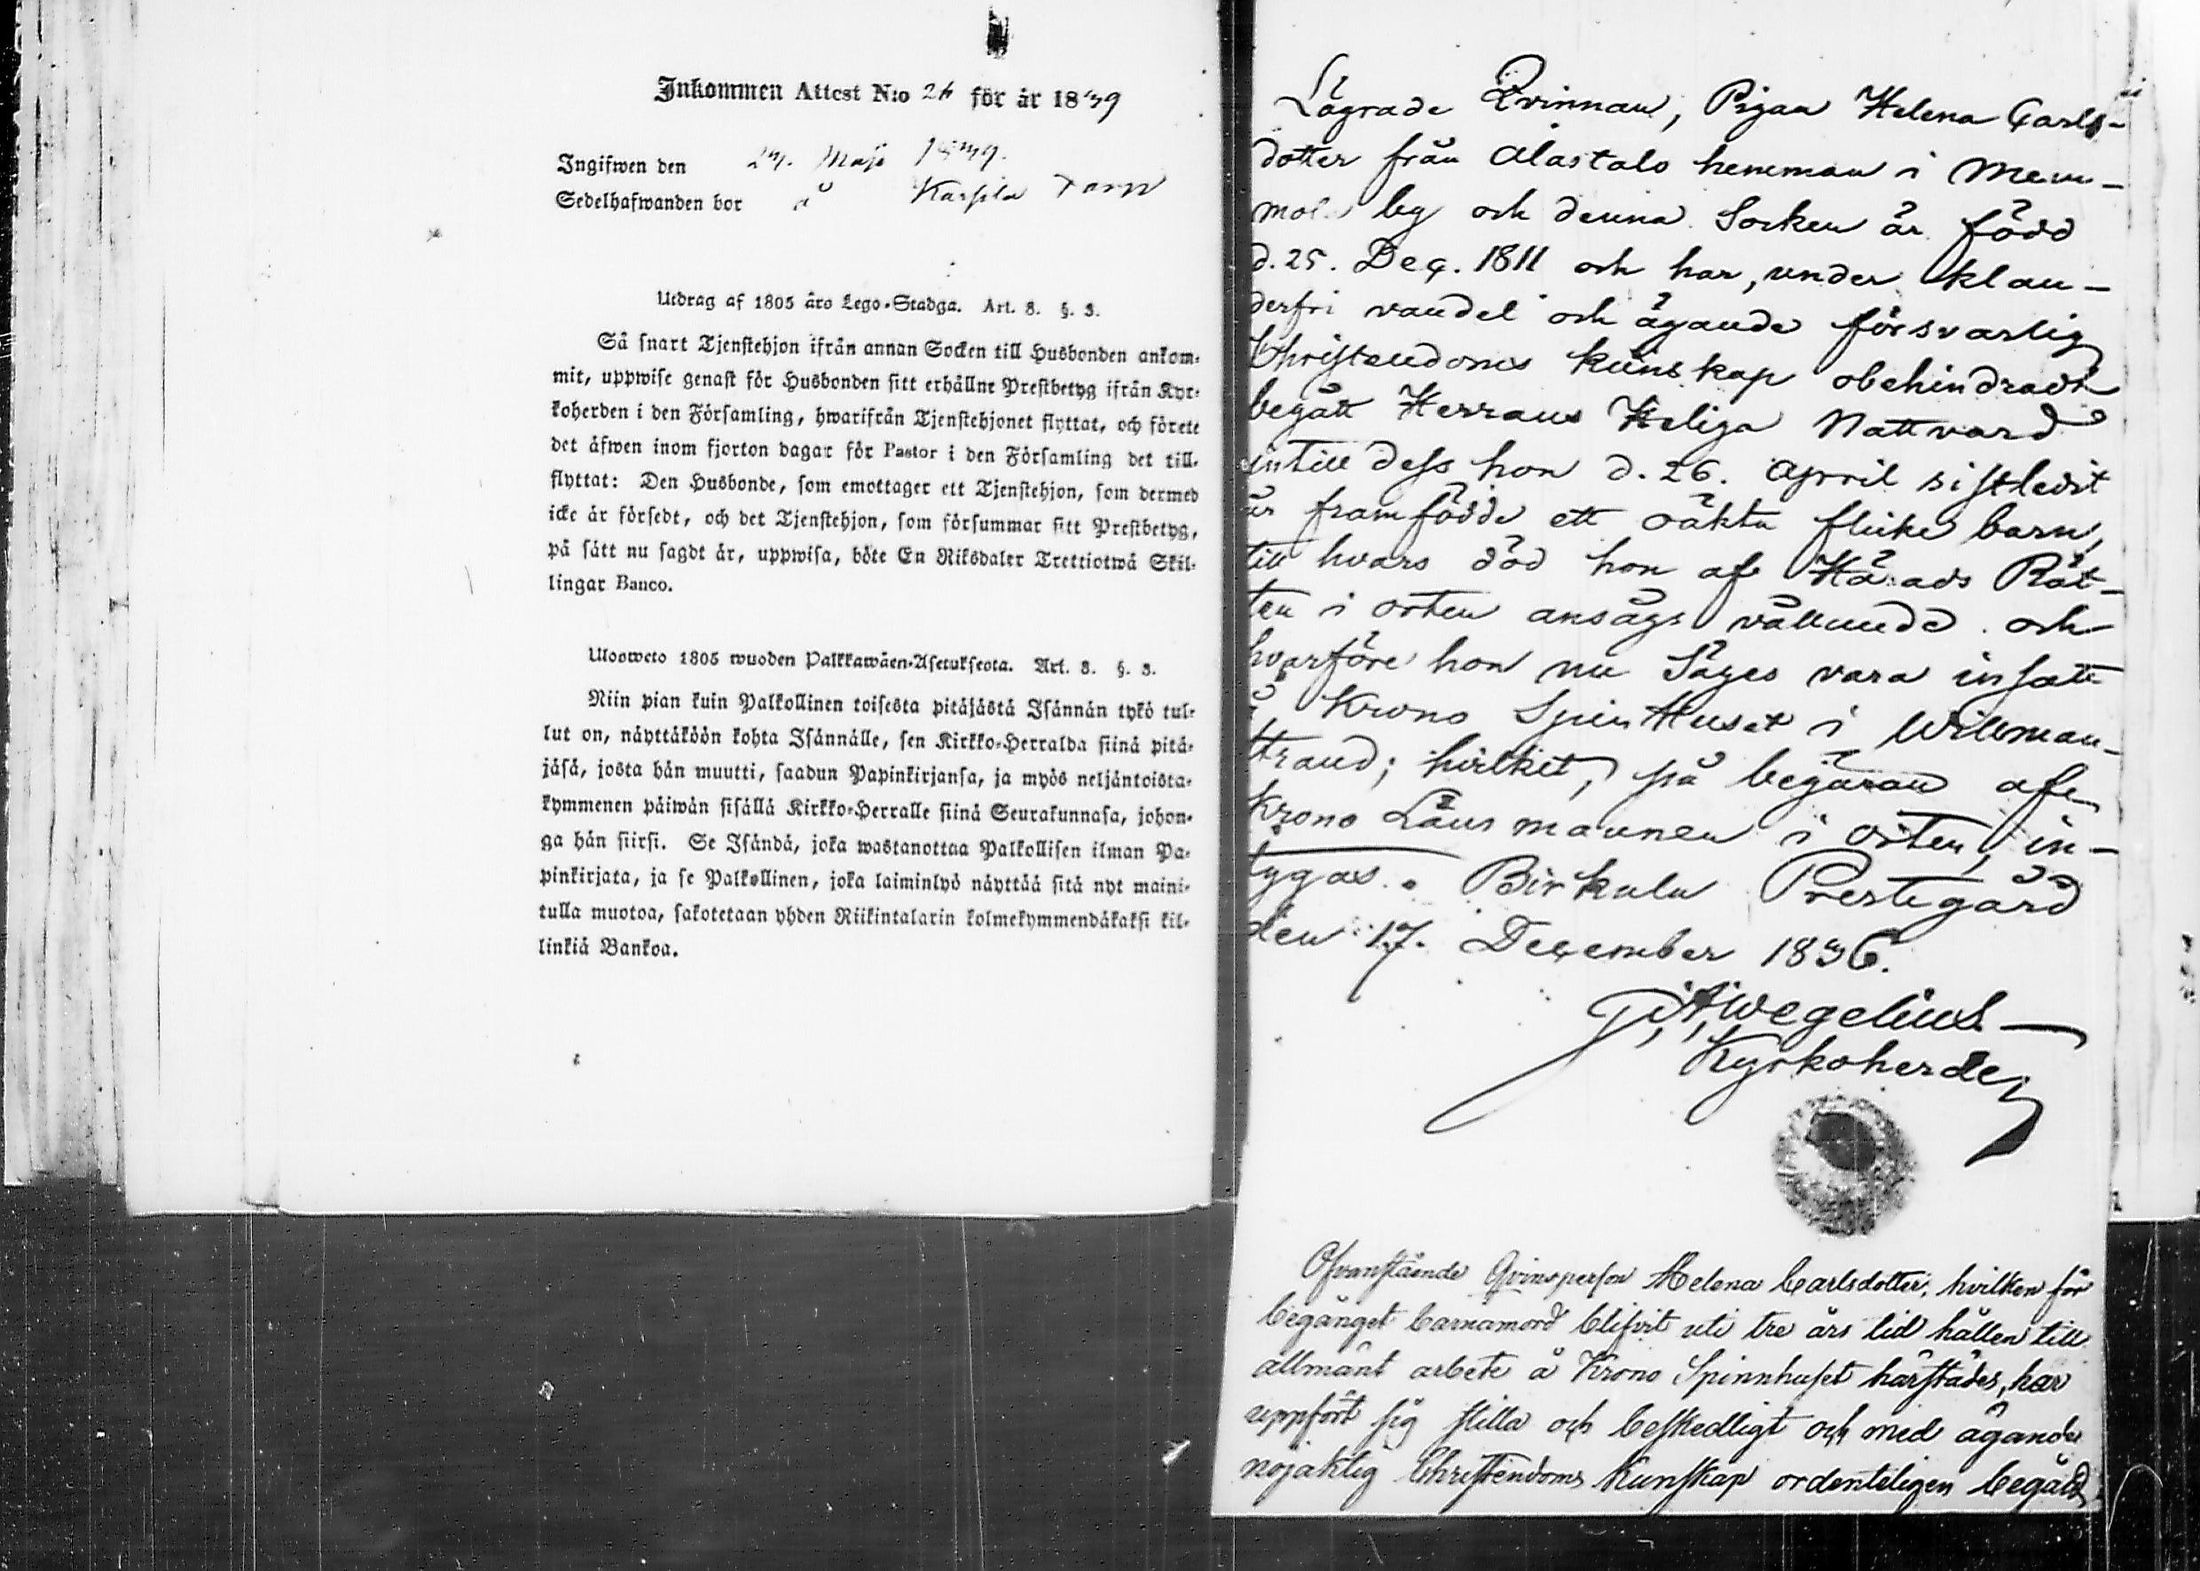 Inkommen Attest N:o 26 för år 1839
Ingifwen den 27. Maji 1839.
Sedelhafwanden bor å Karsila Torp
Utdrag af 1805 års Lego-Stadga. Art. 8. §. 3.
Så snart Tjenstehjon ifrån annan Socken till Husbonden ankom-
mit, uppwise genast för Husbonden sitt erhållne Prestbetyg ifrån Kyr-
koherden i den Församling, hwarifrån Tjenstehjonet flyttat, och förete
det äfwen inom fjorton dagar för Pastor i den Församling det till-
flyttat: Den Husbonde, som emottager ett Tjenstehjon, som dermed
icke är försedt, och det Tjenstehjon, som försummar sitt Prestbetyg,
på sätt nu sagdt är, uppwisa, böte En Riksdaler Trettiotwå Skil-
lingar Banco.
Ulosweto 1805 wuoden Palkkawäen-Asetuksesta. Art. 8. §. 3.
Niin pian kuin Palkollinen toisesta pitäjästä Isännän tykö tul-
lut on, näyttäköön kohta Isännälle, sen Kirkko-Herralda siinä pitä-
jäsä, josta hän muutti, saadun Papinkirjansa, ja myös neljäntoista-
kymmenen päiwän sisällä Kirkko-Herralle siinä Seurakunnasa, johon-
ga hän siirsi. Se Isändä, joka wastanottaa Palkollisen ilman Pa-
pinkirjata, ja se Palkollinen, joka laiminlyö näyttää sitä nyt maini-
tulla muotoa, sakotetaan yhden Riikintalarin kolmekymmendäkaksi kil-
linkiä Bankoa.
Lägrade Qvinnan, Pigan Helena Carls-
dotter från Alastalo hemman i Mem-
mola by och denna Socken är född
d. 25. Dec. 1811 och har, under klan-
derfri vandel och ägande försvarlig
Christendoms kunskap obehindradt
begått Herrans Heliga Nattvard
intill dess hon d. 26. April sistledit
år framfödde ett oäkta flicke barn,
till hvars död hon af Härads Rät-
ten i orten ansågs vållande och
hvarföre hon nu Säges vara insatt
å Krono Spin Huset i Willman-
strand; hvilket, på begäran af
Krono Länsmannen i orten, in-
tygas. Birkala Prestegård
den 17. December 1836.
G. A. Wegelius
Kyrkoherde
Ofvanstående Qvinsperson Helena Carlsdotter, hvilken för
begånget barnamord blifvit uti tre års tid hållen till
allmänt arbete å Krono Spinnhuset härstädes, har
uppfört sig stilla och beskedligt och med ägande
nöjaktig Christendoms Kunskap ordenteligen begådt